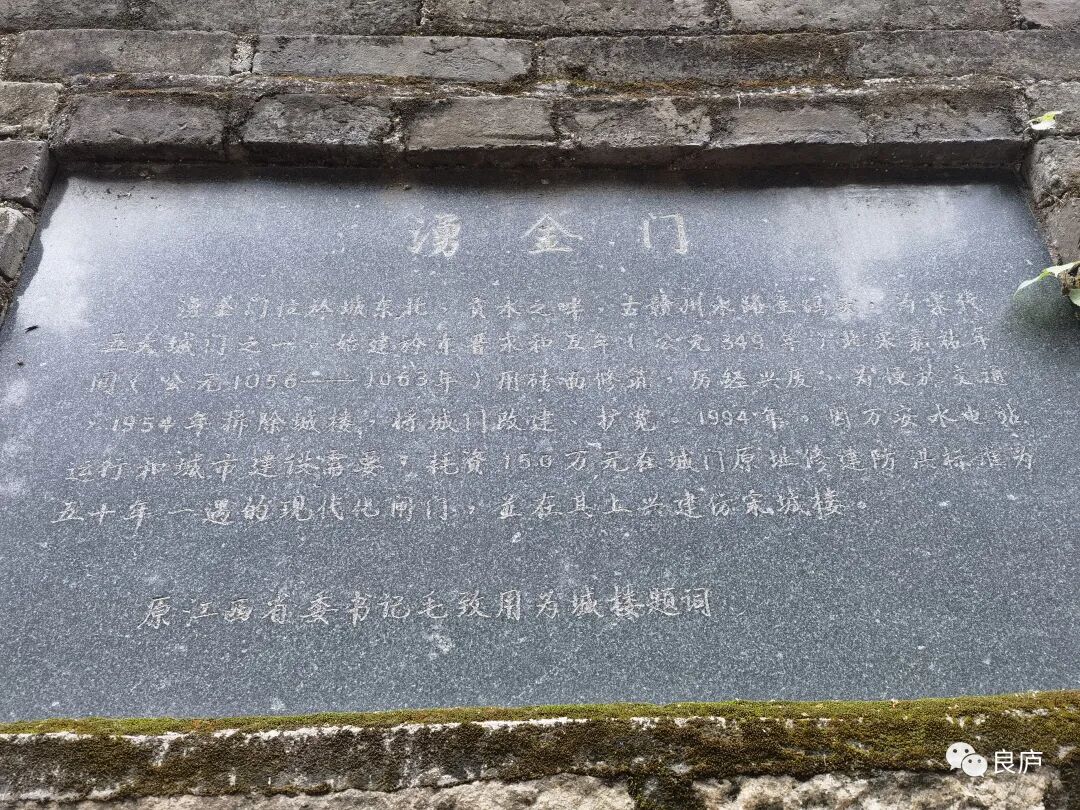 湧金门
湧金门位於城东北，贡水之畔，古赣州水路至码头，为宋代
五大城门之一。始建於东晋永和五年（公元349年）北宋嘉祐年
间（公元1056——1063年）用砖石修筑，历经兴废，为便於交通
，1954年拆除城楼，将城门改建、扩宽。1994年，因万安水电站
运行和城市建设需要，耗资150万元在城门原址修建防洪标准为
五十年一遇的现代化闸门，並在其上兴建仿宋城楼。
原江西省委书记毛致用为城楼题词
良庐